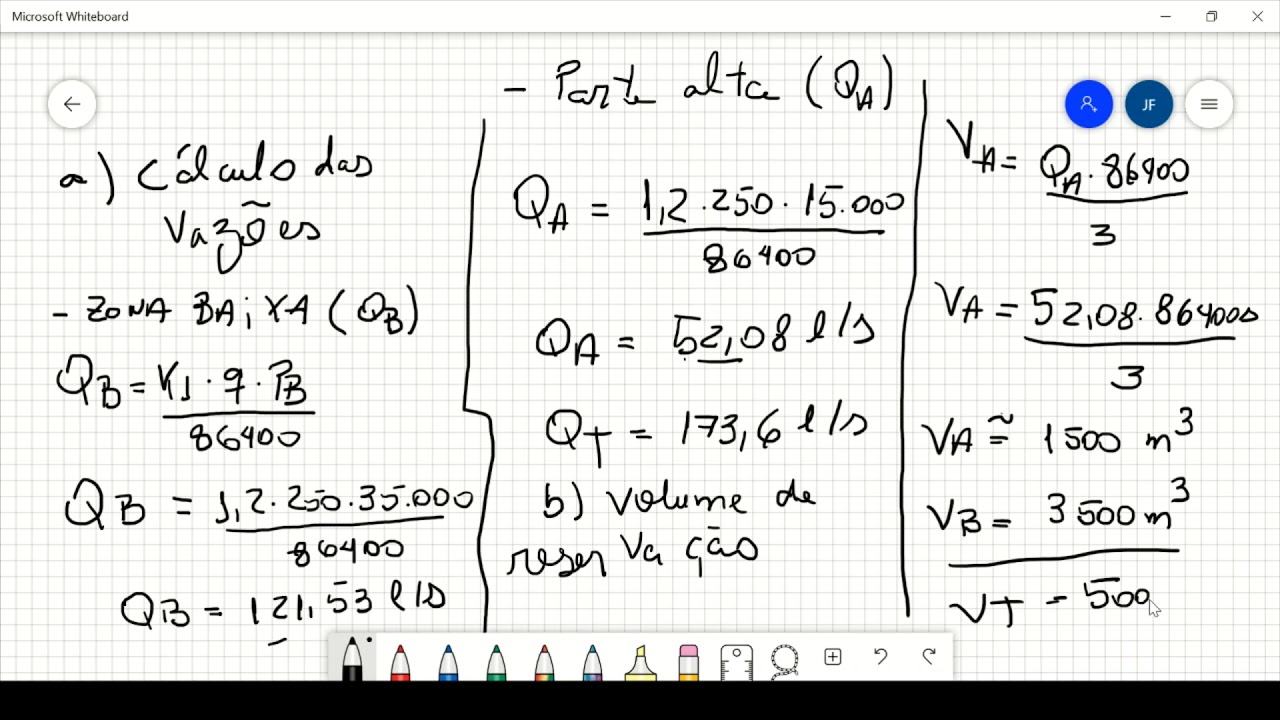 Microsoft Whiteboard
JF
a) Cálculo das
Vazões
- ZONA BAiXA (QB)
QB = K1 · q · PB
86400
QB = 1,2 · 250 · 35.000
86400
QB = 121,53 l/s
- Parte alta (QA)
QA = 1,2 · 250 · 15.000
86400
QA = 52,08 l/s
QT = 173,6 l/s
b) volume de
reservação
VA = QA · 86400
3
VA = 52,08 · 86400s
3
VA ≅ 1500 m³
VB = 3500 m³
VT = 500